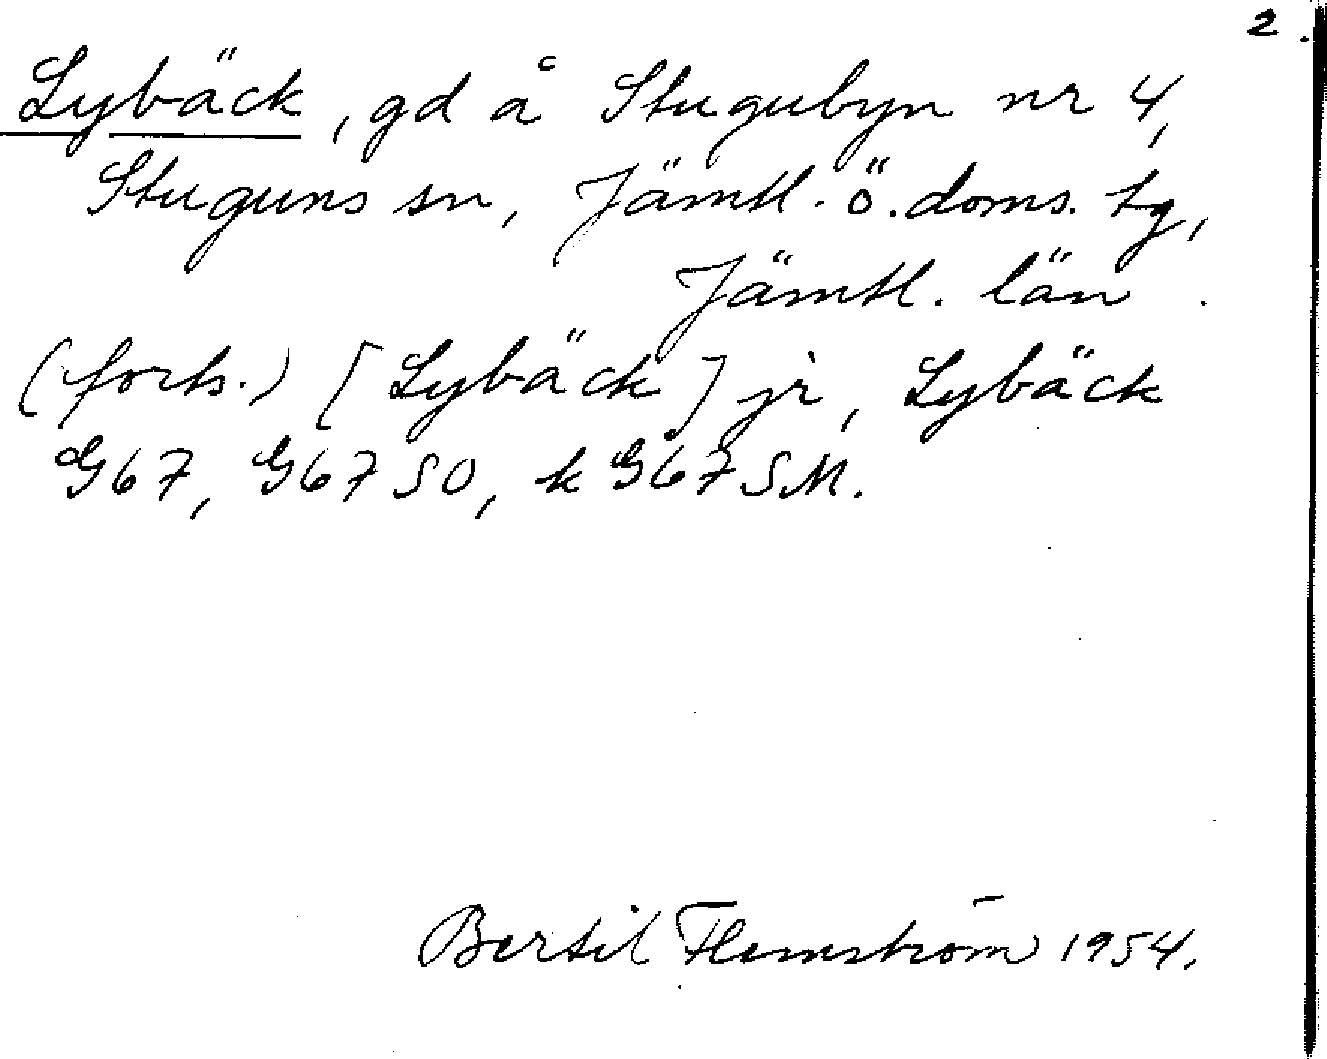 2.
Lybäck, gd å Stugubyn nr 4,
Stuguns sn, Jämtl. ö. doms. tg,
Jämtl. län.
(forts.) [Lybäck] jr, Lybäck
G67, G67SO, k G67SM.
Bertil Flemström 1954.